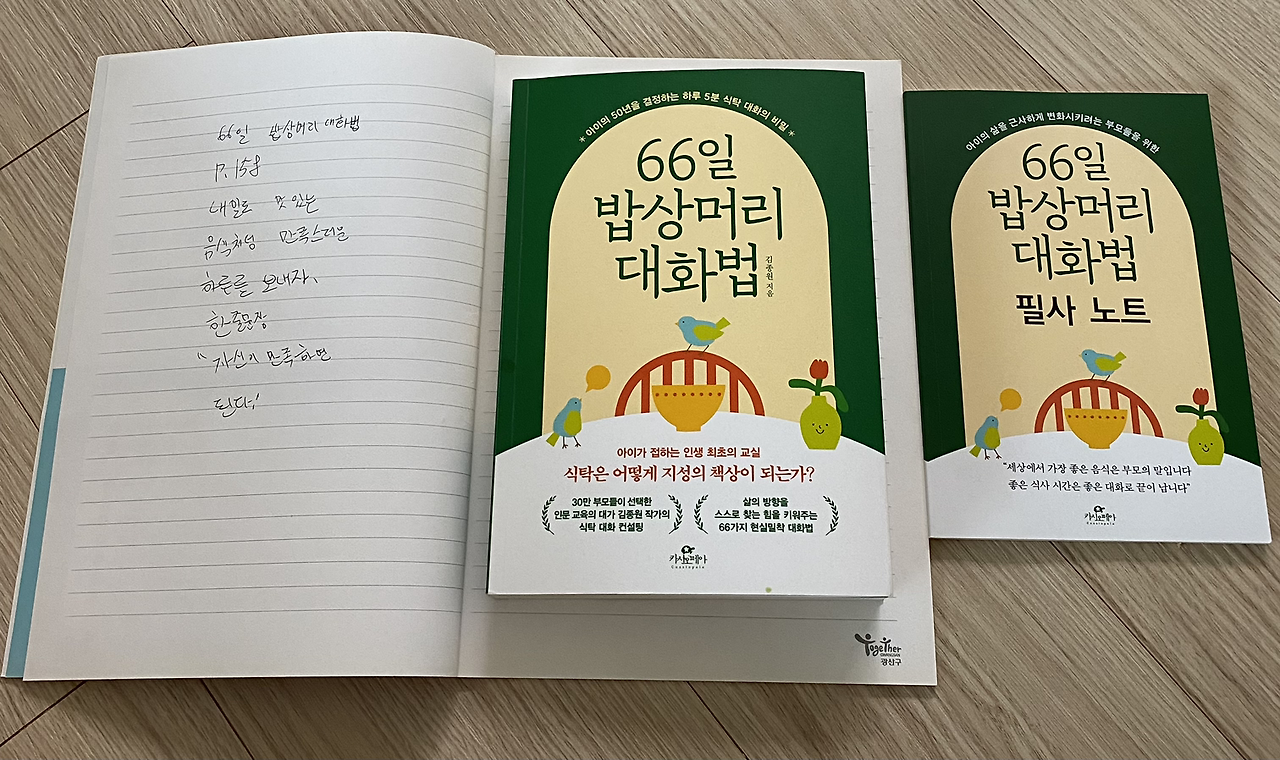 66일 밥상머리 대화법
P.158
내일도 맛있는
음식처럼 만족스러운
하루를 보내자.
한줄문장
"자신이 만족하면
된다!
* 아이의 50년을 결정하는 하루 5분 식탁 대화의 비밀 *
66일
밥상머리
대화법
김종원 지음
아이가 접하는 인생 최초의 교실
식탁은 어떻게 지성의 책상이 되는가?
30만 부모들이 선택한
인문 교육의 대가 김종원 작가의
식탁 대화 컨설팅
삶의 방향을
스스로 찾는 힘을 키워주는
66가지 현실밀착 대화법
카시오페아
Cassiopeia
Together
GWANGSAN
광산구
아이의 삶을 근사하게 변화시키려는 부모들을 위한
66일
밥상머리
대화법
필사 노트
"세상에서 가장 좋은 음식은 부모의 말입니다
좋은 식사 시간은 좋은 대화로 끝이 납니다"
카시오페아
Cassiopeia